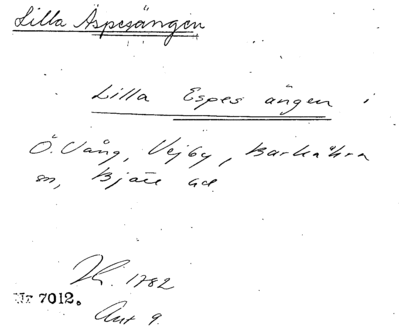 Lilla Äspesängen
Lilla Espes ängen i
Ö. Vång, Vejby, Barkåkra
sn, Bjäre hd
Th. 1782
Nr 7012.
Akt 9.